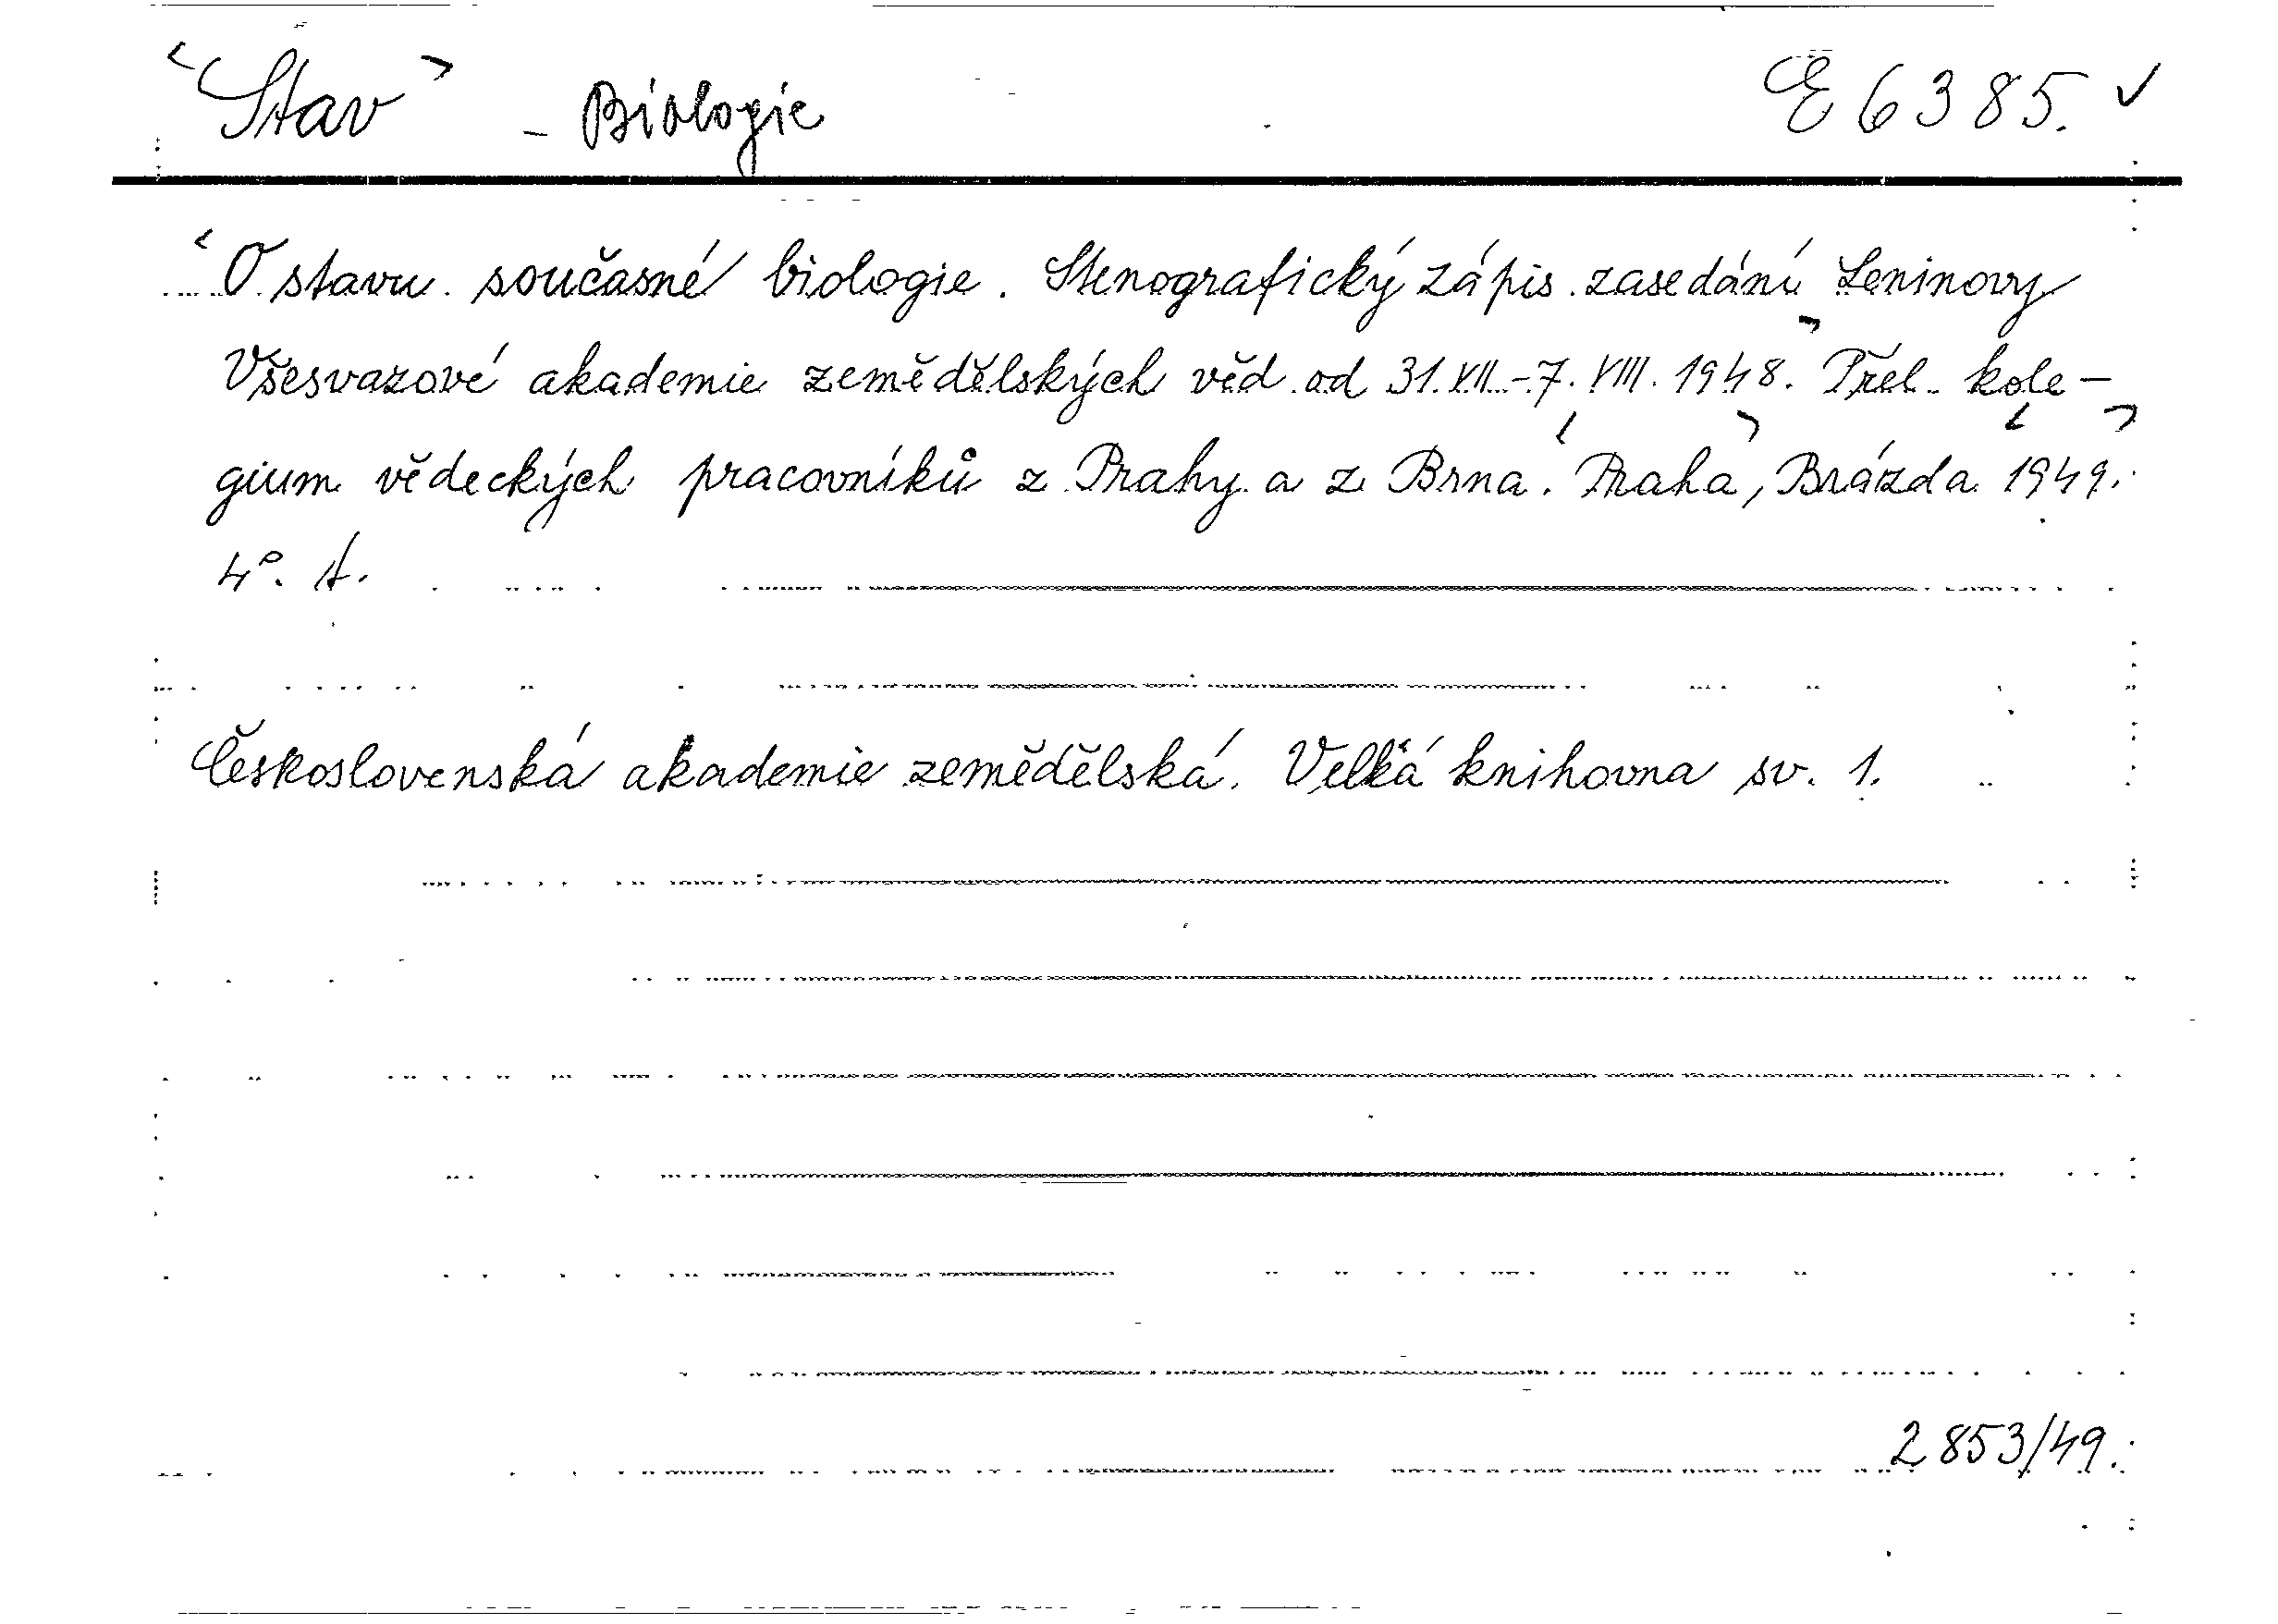 "Stav" - Biologie E 6385. ✓
"O stavu současné biologie. Stenografický zápis zasedání Leninovy
Všesvazové akademie zemědělských věd od 31.VII.-7.VIII. 1948. Přel. kole-
gium vědeckých pracovníků z Prahy a z Brna. Praha, Brázda 1949.
4°.
Československá akademie zemědělská. Velká knihovna sv. 1.
2853/49.